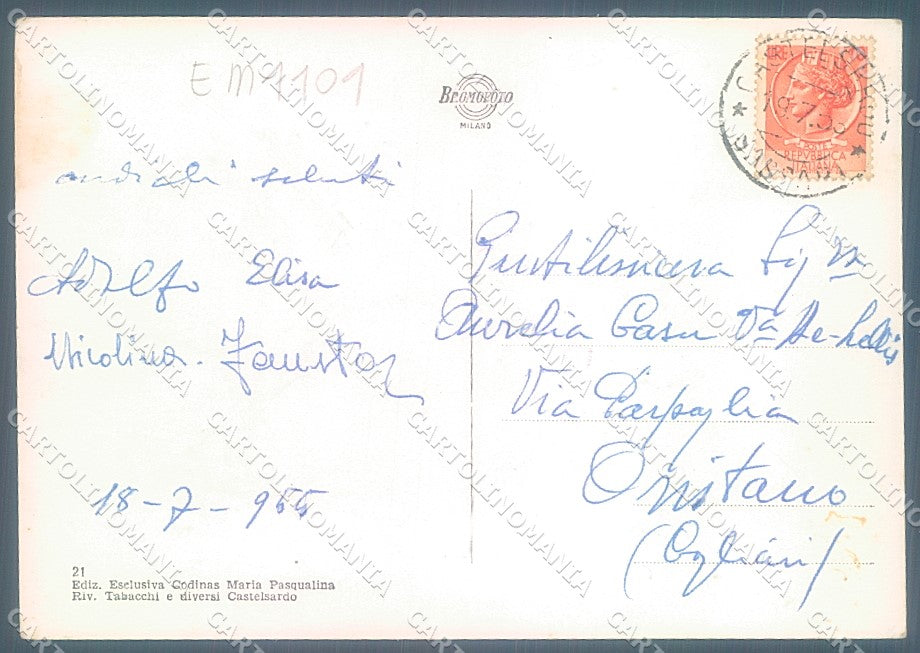 EM1101
BROMOFOTO
MILANO
LIRE 10
POSTE
REPVBBLICA
ITALIANA
CASTELSARDO
18.7.55
* SASSARI *
cordiali saluti
Adolfo Elisa
Nicolina - Fausto
18-7-955
Gentilissima Sig ra
Aurelia Casu Va De-Lellis
Via Parpaglia
Oristano
(Cagliari)
21
Ediz. Esclusiva Codinas Maria Pasqualina
Riv. Tabacchi e diversi Castelsardo
CARTOLINOMANIA